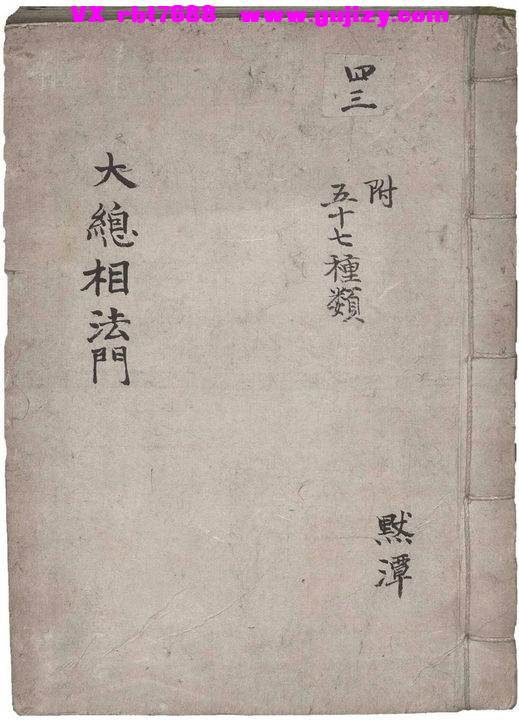 VX rbt7688 www.gujizy.com
四三
附
五十七種類
默潭
大總相法門